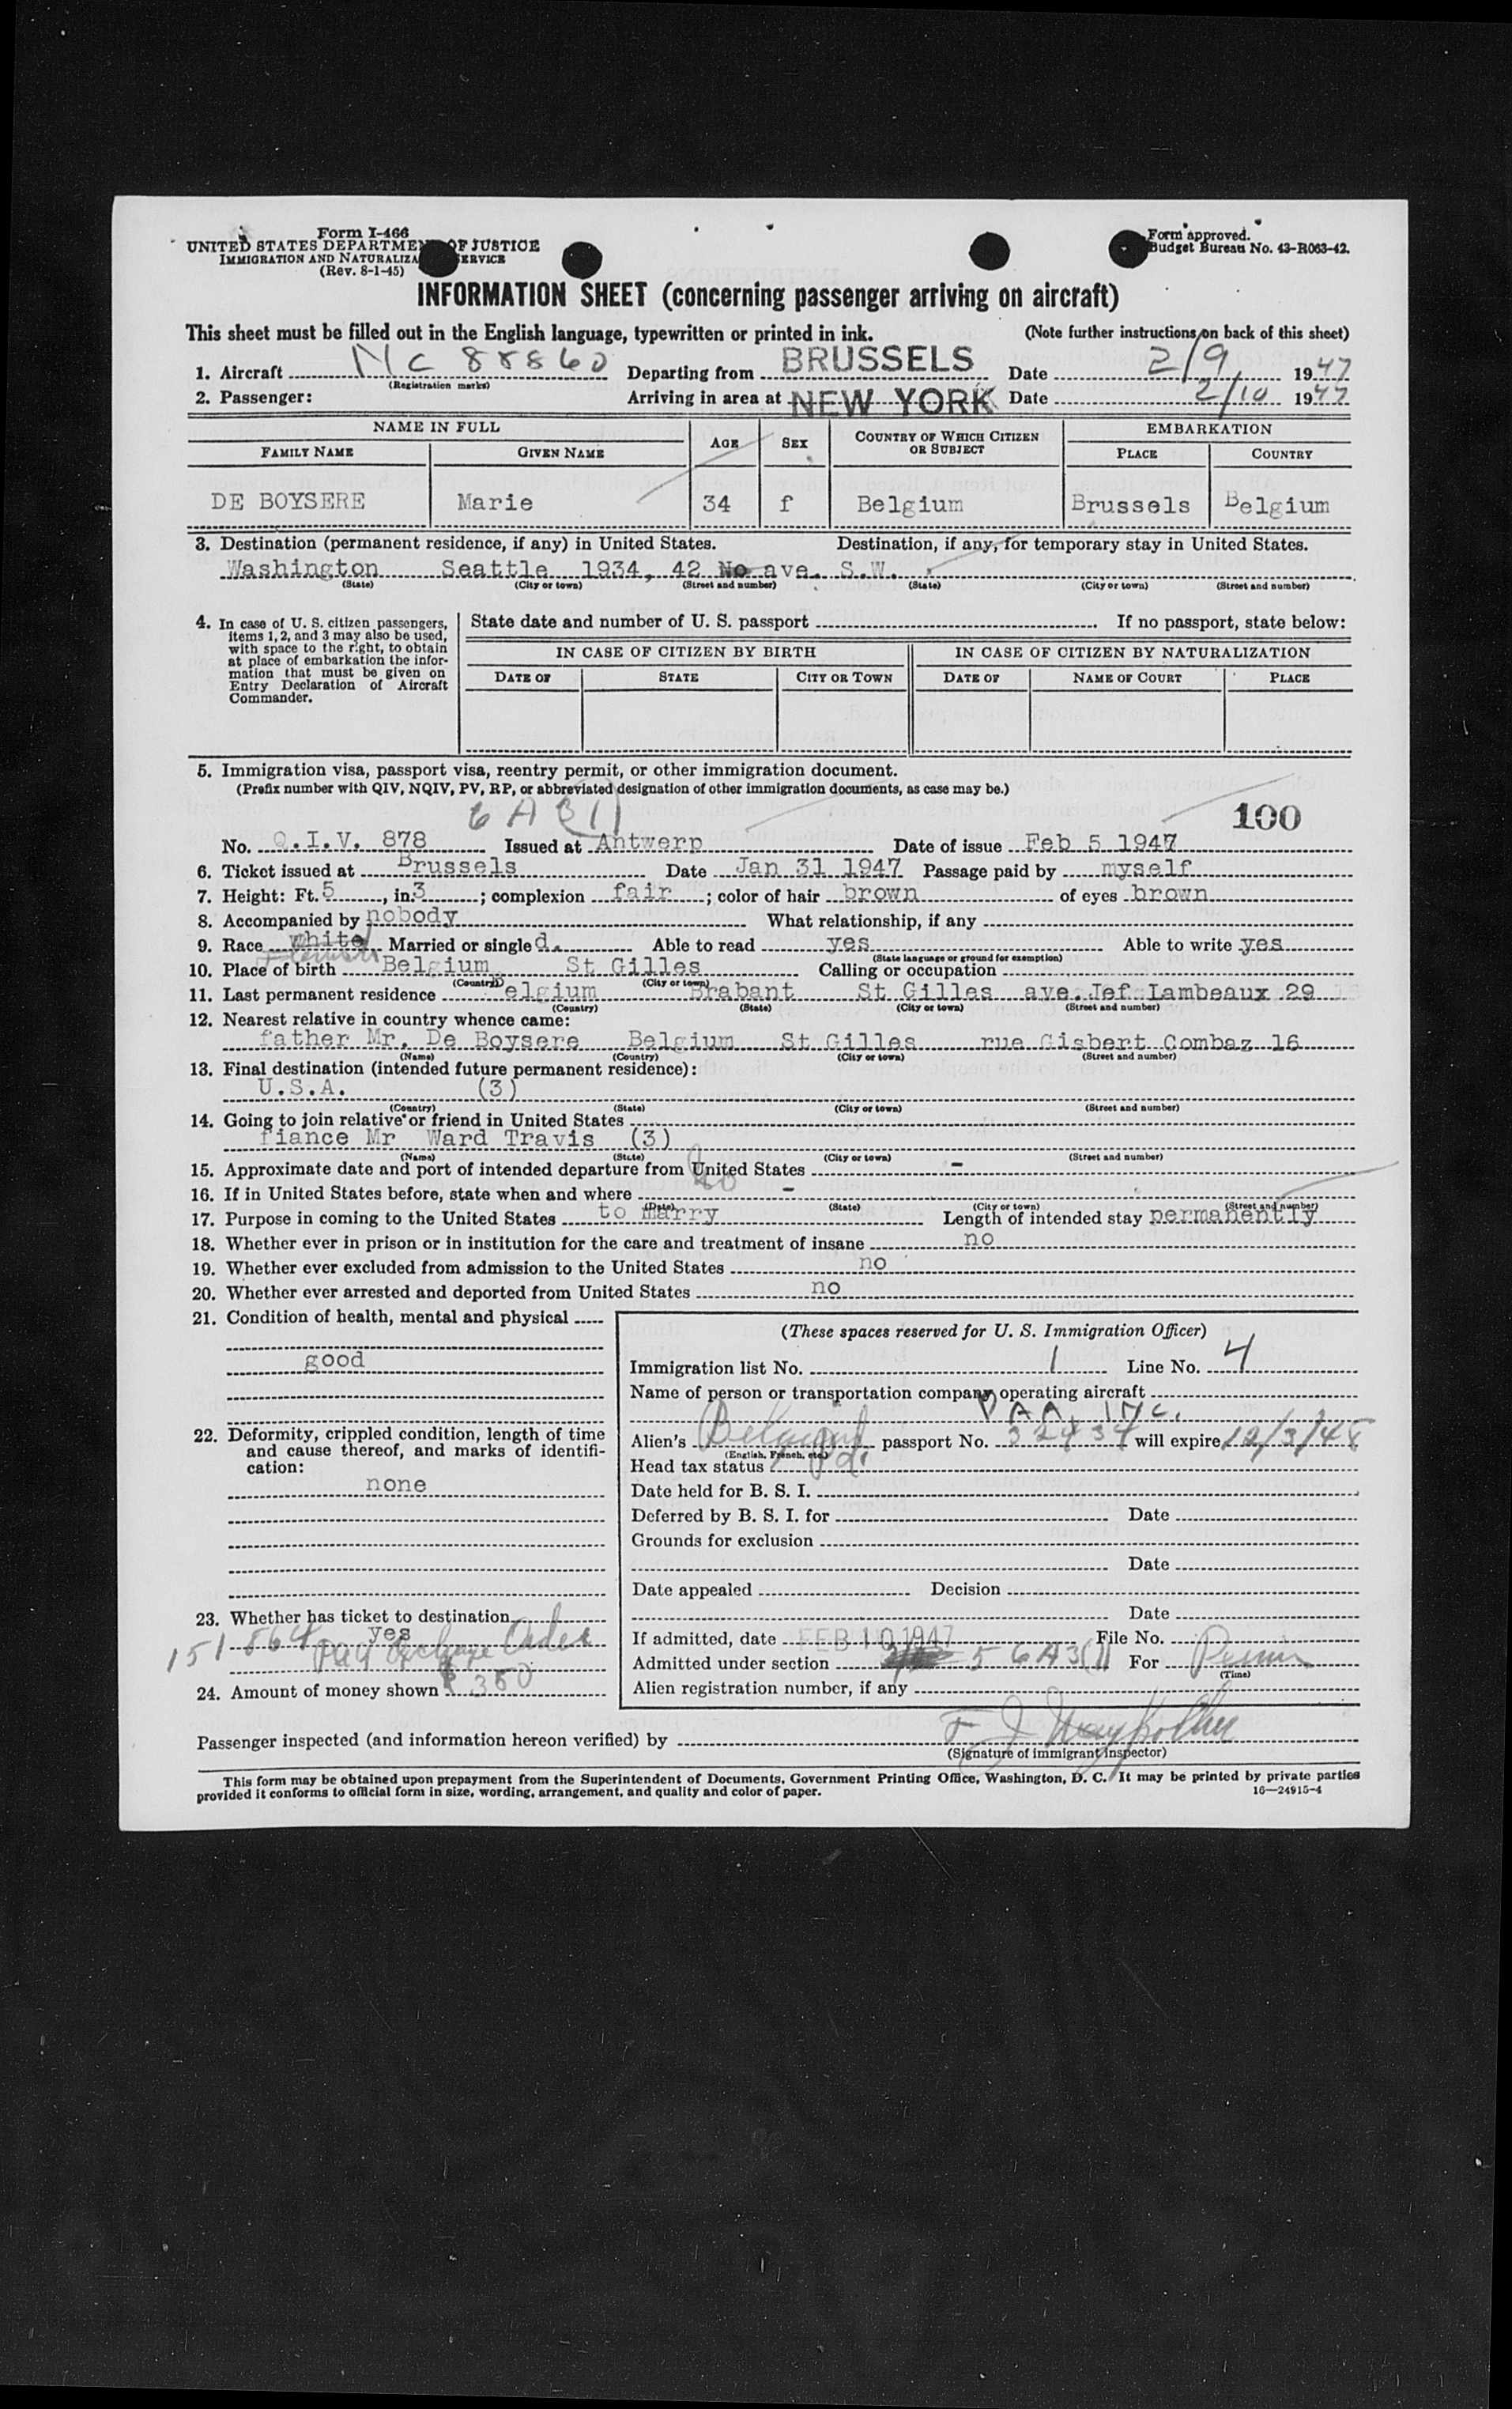 Form I-466
UNITED STATES DEPARTMENT OF JUSTICE
IMMIGRATION AND NATURALIZATION SERVICE
(Rev. 8-1-45)
Form approved.
Budget Bureau No. 43-R063-42.
INFORMATION SHEET (concerning passenger arriving on aircraft)
This sheet must be filled out in the English language, typewritten or printed in ink. (Note further instructions on back of this sheet)
1. Aircraft NC 88860 Departing from BRUSSELS Date 2/9, 1947
(Registration marks)
2. Passenger: Arriving in area at NEW YORK Date 2/10 1947
NAME IN FULL AGE SEX COUNTRY OF WHICH CITIZEN OR SUBJECT EMBARKATION
FAMILY NAME GIVEN NAME PLACE COUNTRY
DE BOYSERE Marie 34 f Belgium Brussels Belgium
3. Destination (permanent residence, if any) in United States. Destination, if any, for temporary stay in United States.
Washington Seattle 1934, 42 No ave. S.W.
(State) (City or town) (Street and number) (State) (City or town) (Street and number)
4. In case of U. S. citizen passengers, items 1, 2, and 3 may also be used, with space to the right, to obtain at place of embarkation the information that must be given on Entry Declaration of Aircraft Commander.
State date and number of U. S. passport If no passport, state below:
IN CASE OF CITIZEN BY BIRTH IN CASE OF CITIZEN BY NATURALIZATION
DATE OF STATE CITY OR TOWN DATE OF NAME OF COURT PLACE
5. Immigration visa, passport visa, reentry permit, or other immigration document.
(Prefix number with QIV, NQIV, PV, RP, or abbreviated designation of other immigration documents, as case may be.)
6 A (31) 100
No. Q.I.V. 878 Issued at Antwerp Date of issue Feb 5 1947
6. Ticket issued at Brussels Date Jan 31 1947 Passage paid by myself
7. Height: Ft. 5, in. 3; complexion fair; color of hair brown of eyes brown
8. Accompanied by nobody What relationship, if any
9. Race white Married or single d. Able to read yes Able to write yes
Flemish (State language or ground for exemption)
10. Place of birth Belgium St Gilles Calling or occupation
(Country) (City or town)
11. Last permanent residence Belgium Brabant St Gilles ave. Jef Lambeaux 29
(Country) (State) (City or town) (Street and number)
12. Nearest relative in country whence came:
father Mr. De Boysere Belgium St Gilles rue Gisbert Combaz 16
(Name) (Country) (City or town) (Street and number)
13. Final destination (intended future permanent residence):
U.S.A. (3)
(Country) (State) (City or town) (Street and number)
14. Going to join relative or friend in United States
fiance Mr Ward Travis (3)
(Name) (State) (City or town) (Street and number)
15. Approximate date and port of intended departure from United States -
16. If in United States before, state when and where No -
(Date) (State) (City or town) (Street and number)
17. Purpose in coming to the United States to marry Length of intended stay permanently
18. Whether ever in prison or in institution for the care and treatment of insane no
19. Whether ever excluded from admission to the United States no
20. Whether ever arrested and deported from United States no
21. Condition of health, mental and physical
good
22. Deformity, crippled condition, length of time and cause thereof, and marks of identification:
none
23. Whether has ticket to destination
yes
151564 PAA Exchange Order
24. Amount of money shown $ 350
(These spaces reserved for U. S. Immigration Officer)
Immigration list No. 1 Line No. 4
Name of person or transportation company operating aircraft
PAA, INC.
Alien's Belgian passport No. 32434 will expire 12/3/48
(English, French, etc.)
Head tax status Pd.
Date held for B. S. I.
Deferred by B. S. I. for Date
Grounds for exclusion
Date
Date appealed Decision
Date
If admitted, date FEB 10 1947 File No.
Admitted under section 5 6A3(1) For Perm
(Time)
Alien registration number, if any
Passenger inspected (and information hereon verified) by F J
(Signature of immigrant inspector)
This form may be obtained upon prepayment from the Superintendent of Documents, Government Printing Office, Washington, D. C. It may be printed by private parties
provided it conforms to official form in size, wording, arrangement, and quality and color of paper. 16—24915-4